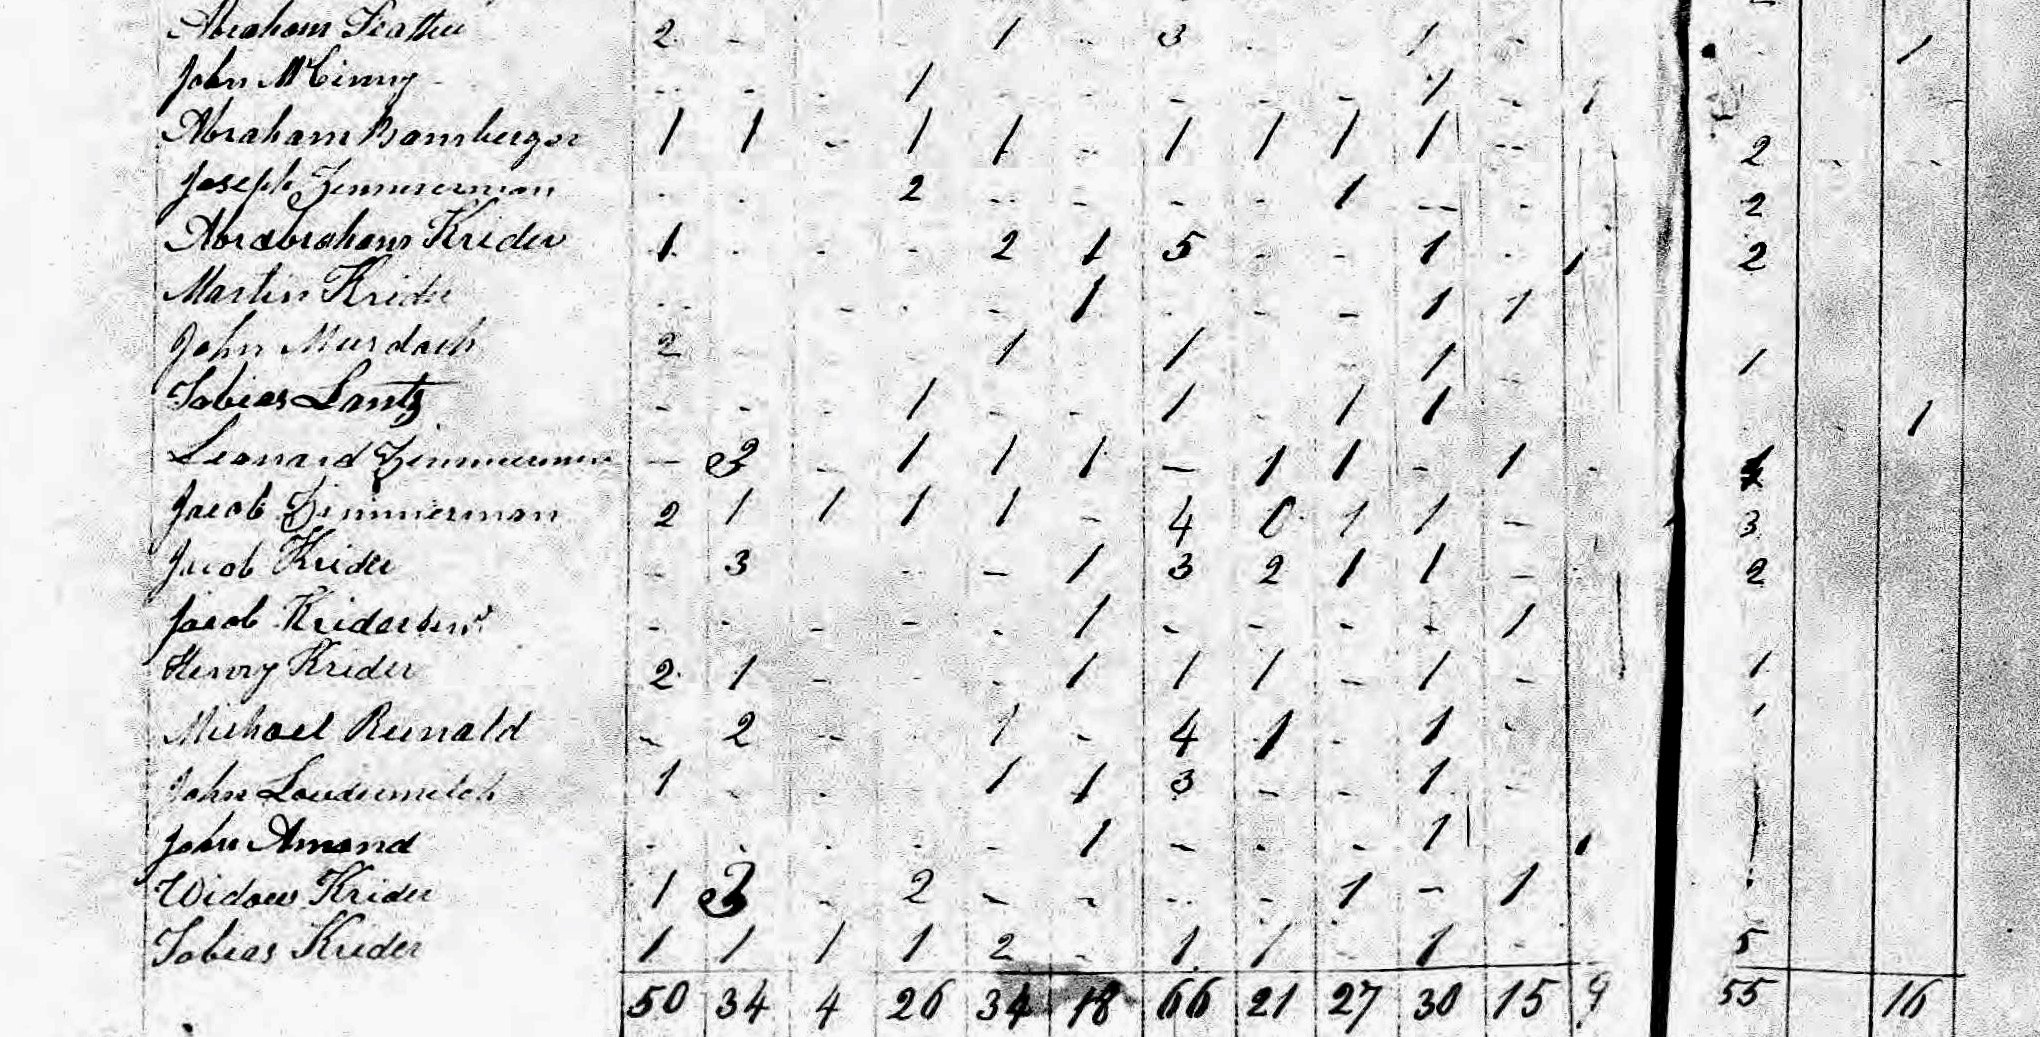 Abraham Feather 2 - 1 - 3 - 1 - 1
John McCinny - - - 1 - - - - 1 - 1
Abraham Bamberger 1 1 - 1 1 - 1 1 1 1 -- 2 - -
Joseph Zimmerman - - 2 - - - - 1 - - 2
Abrabraham Krider 1 - - - 2 1 5 - - 1 - 1 2
Martin Krider - - - - 1 - - - 1 1
John Murdach 2 - - 1 1 - 1 - 1
Tobias Lantz - - - 1 - - 1 - 1 1 1
Leonard Zimmerman - 3 - 1 1 1 - 1 1 - 1 -
Jacob Zimmerman 2 1 1 1 1 - 4 0 1 1 - 3
Jacob Krider - 3 - - 1 3 2 1 1 - 2
Jacob Krider - - - - - 1 - - - - 1
Henry Krider 2 1 - - - 1 1 1 - 1 - 1
Michael Reinald - 2 - - 1 - 4 1 - 1 - 1
John Loudermilch 1 - - 1 1 3 - - 1 -
John Amond - - - - - 1 - - - 1 1
Widow Krider 1 3 - 2 - - - - 1 - 1
Tobias Krider 1 1 1 1 2 - 1 1 - 1 - 5
50 34 4 26 34 18 66 21 27 30 15 9 55 16